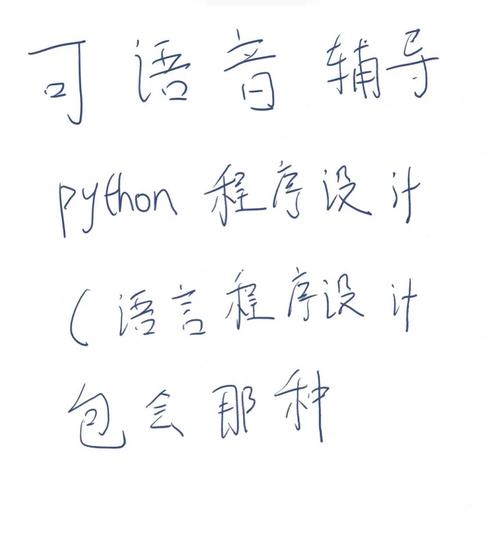 可语音辅导
python 程序设计
(语言程序设计
包会那种